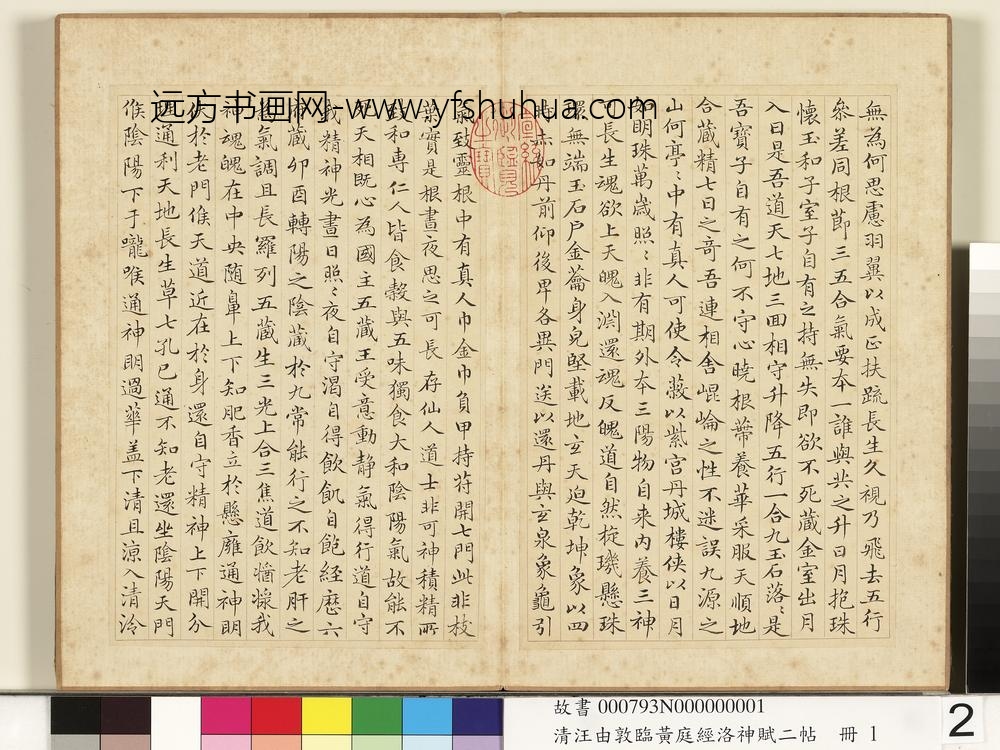 远方书画网-www.yfshuhua.com
無為何思慮羽翼以成正扶疏長生久視乃飛去五行
參差同根節三五合氣要本一誰與共之升日月抱珠
懷玉和子室子自有之持無失即欲不死藏金室出月
入日是吾道天七地三回相守升降五行一合九玉石落〻是
吾寶子自有之何不守心曉根蒂養華采服天順地
合藏精七日之奇吾連相舍崐崘之性不迷誤九源之
山何亭〻中有真人可使令蔽以紫宫丹城樓俠以日月
明珠萬歲照〻非有期外本三陽物自来内養三神
長生魂欲上天魄入淵還魂反魄道自然㨁璣懸珠
環無端玉石戶金籥身皃堅載地玄天迫乾坤象以四
時赤如丹前仰後卑各異門送以還丹與玄泉象龜引
氣致靈根中有真人巾金巾負甲持符開七門此非枝
葉實是根晝夜思之可長存仙人道士非可神積精所
致和専仁人皆食穀與五味獨食大和陰陽氣故能不
死天相既心為國主五藏王受意動静氣得行道自守
我精神光晝日照〻夜自守渴自得飲飢自飽経歷六
府藏卯酉轉陽之陰藏於九常能行之不知老肝之
為氣調且長羅列五藏生三光上合三焦道飲醬漿我
神魂魄在中央随鼻上下知肥香立於懸廱通神明
伏於老門候天道近在於身還自守精神上下開分
通利天地長生草七孔已通不知老還坐陰陽天門
候陰陽下于嚨喉通神明過華盖下清且涼入清泠
故書 000793N000000001
清汪由敦臨黃庭經洛神賦二帖 冊 1
2